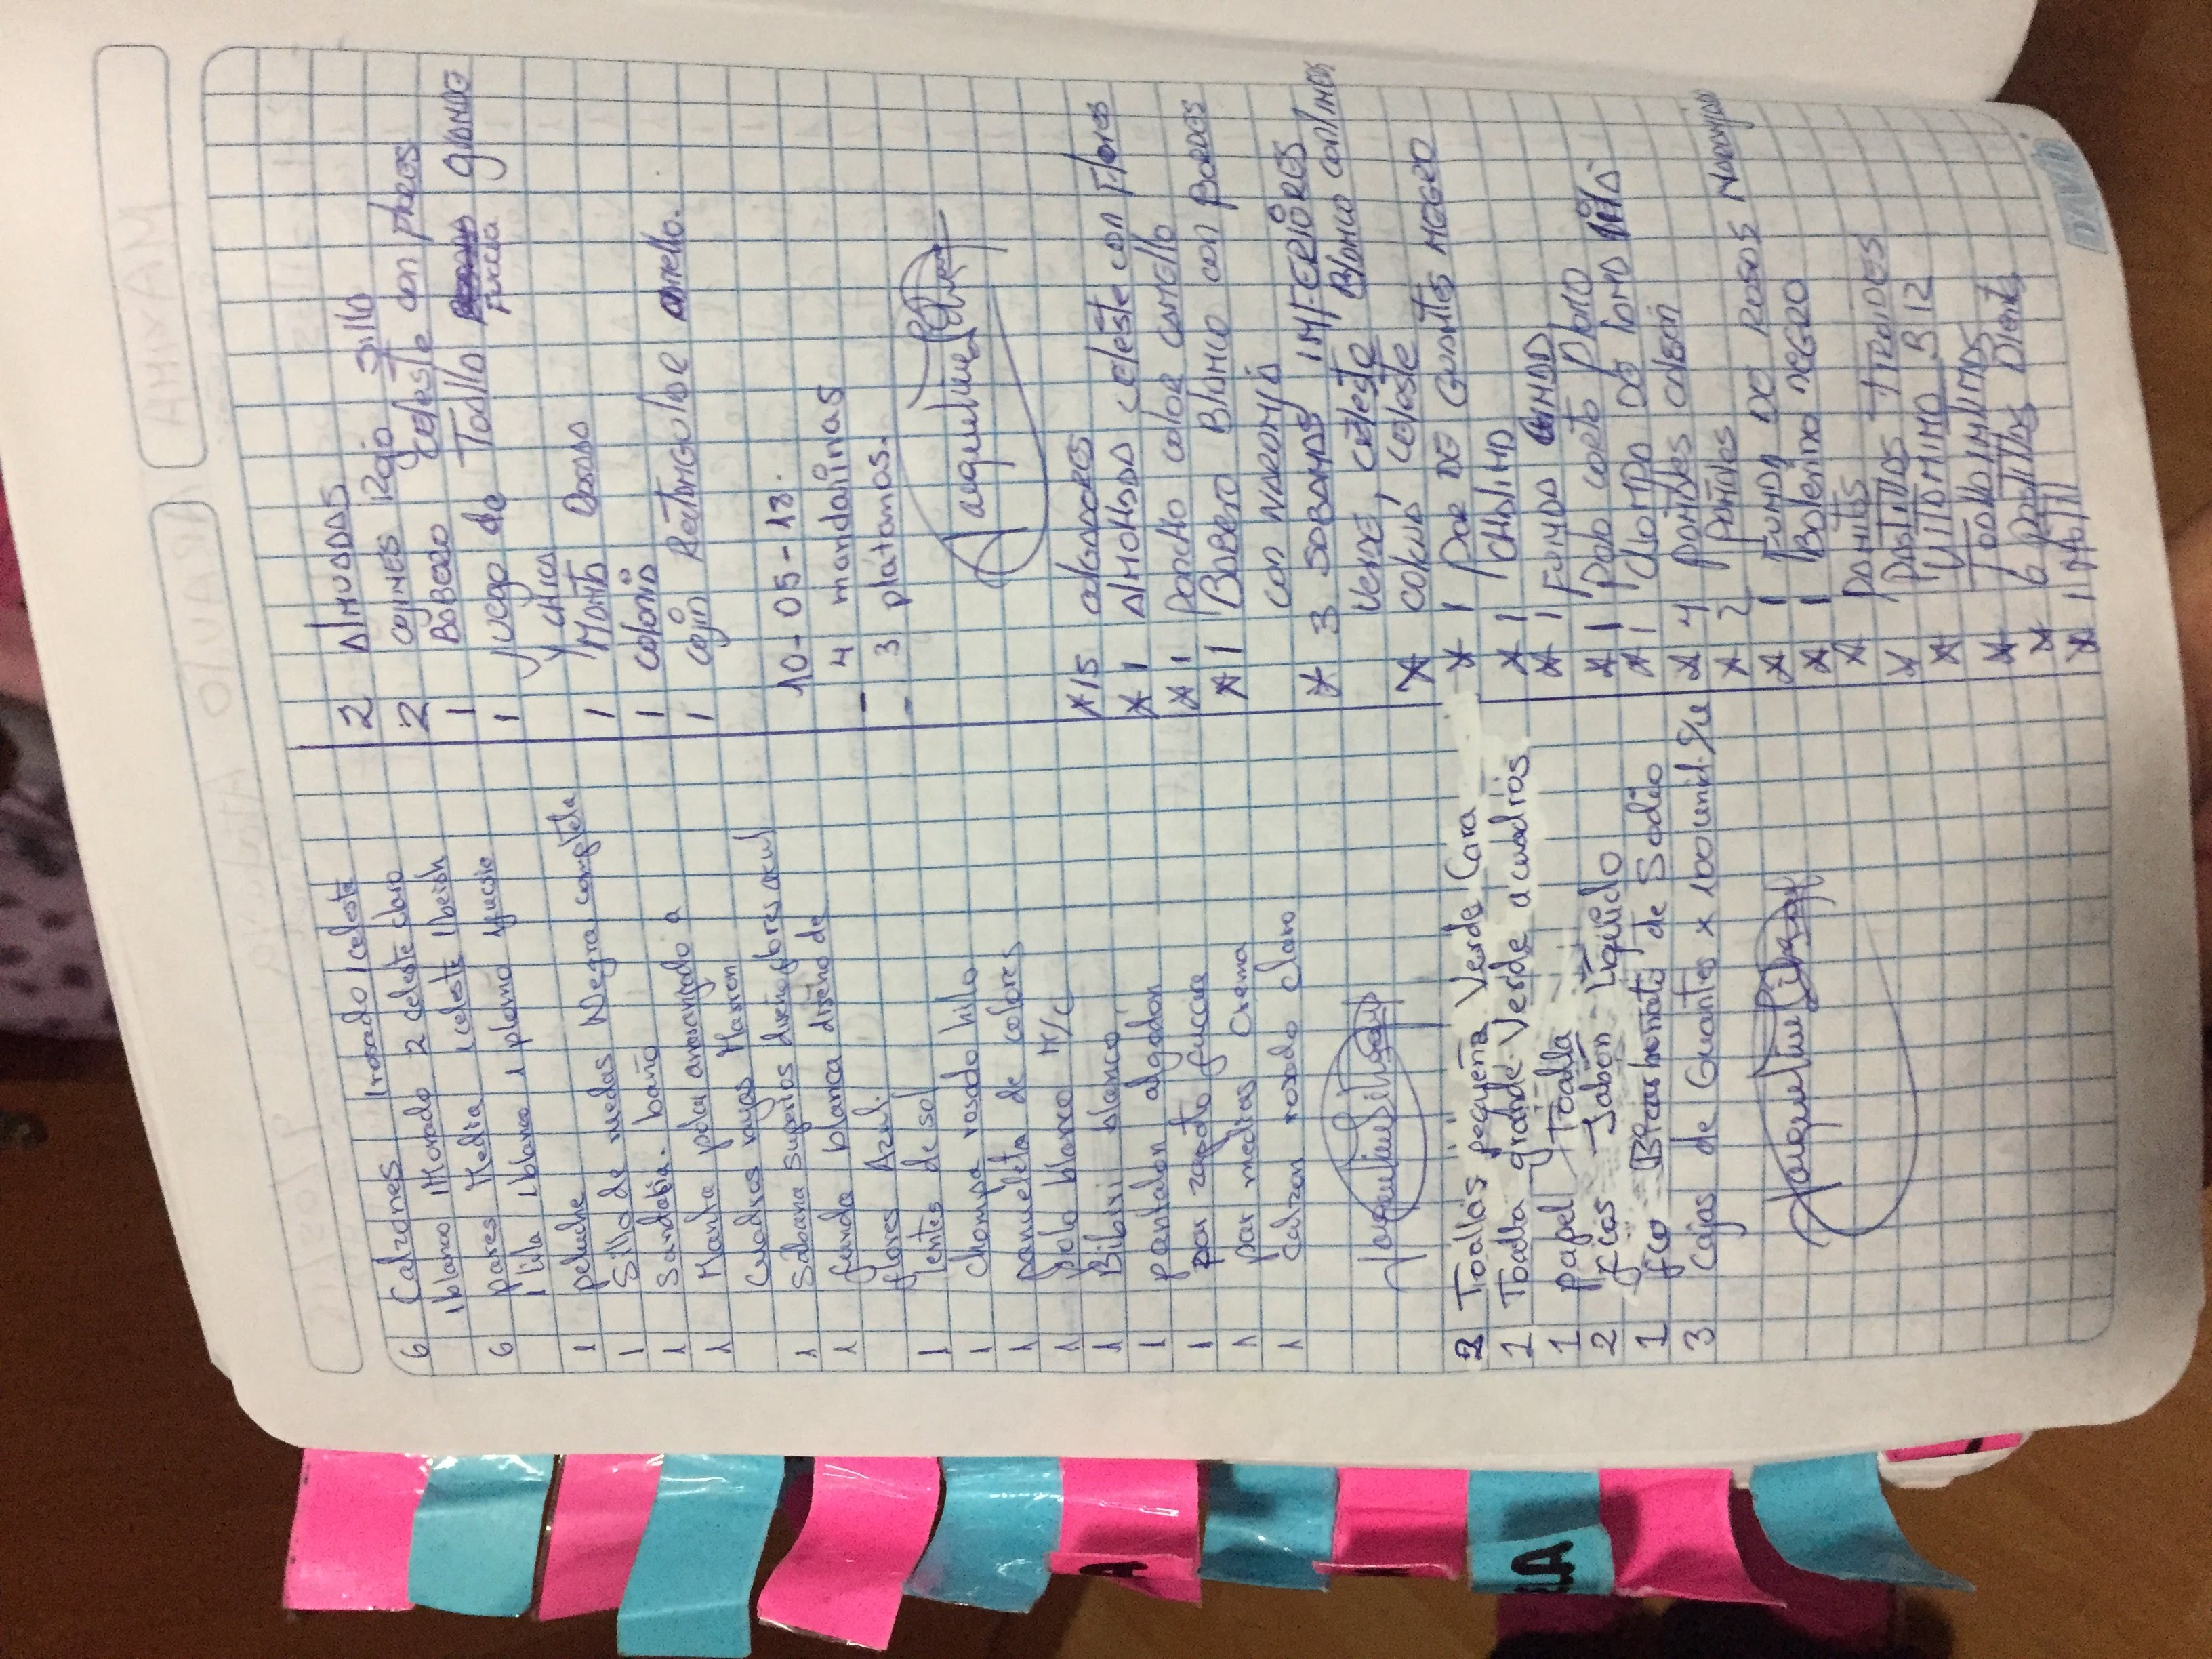 6 Calzones 1 rosado 1 celeste
1 blanco 1 Morado 2 celeste claro
6 pares Media 1 celeste 1 beish
1 lila 1 blanco 1 plomo 1 fucsia
1 peluche
1 Silla de ruedas Negra completa
1 Sandalia baño
1 Manta polar anaranjado a
Cuadros rayas Marron
1 Sabana superior diseño flores azul
1 funda blanca diseño de
flores Azul.
1 lentes de sol
1 chompa rosado hilo
1 pañueleta de colores
1 polo blanco M/C
1 Bibiri blanco
1 pantalon algodon
1 par zapato fuccia
1 par medias crema
1 calzon rosado claro
2 Toallas pequeña Verde Cara
1 Toalla grande Verde a cuadros
1 papel Toalla
2 fcos Jabón Liquido
1 fco Bicarbonato de Sodio
3 Cajas de Guantes x 100 unid. c/u
2 AlMUADAS
2 cojines Rojo Sillo
1 BaBERO celeste con flores
1 juego de Toalla Fuccia grANDE
y chica
1 MANTA Rosada
1 colonia
1 cojin Rectangular amarillo.
10-05-18.
- 4 mandarinas
- 3 platanos.
* 15 colgadores
* 1 AlMOHADA celeste con Flores
* 1 PonCHo color camello
* 1 BaBERO BlANCO con BORDES
con NARANJA
* 3 SABANAS INTERIORES
VERDE, celeste, Blanco con lineas
* celeste
* 1 Par DE GuANTES NEGRO
* 1 CHAlINA
* 1 FUNDA
* 1 Polo corto plomo
* 1
* 4 PAÑAlES calzon
* 2 PAÑAlES
* 1 FUNDA DE Rosas NARANJA
* 1 BolERINA nEGRO
* PAÑITOS
* PASTIllAS TIROIDES
* VITAMINA B 12
*
* 6
* 1
DAVID